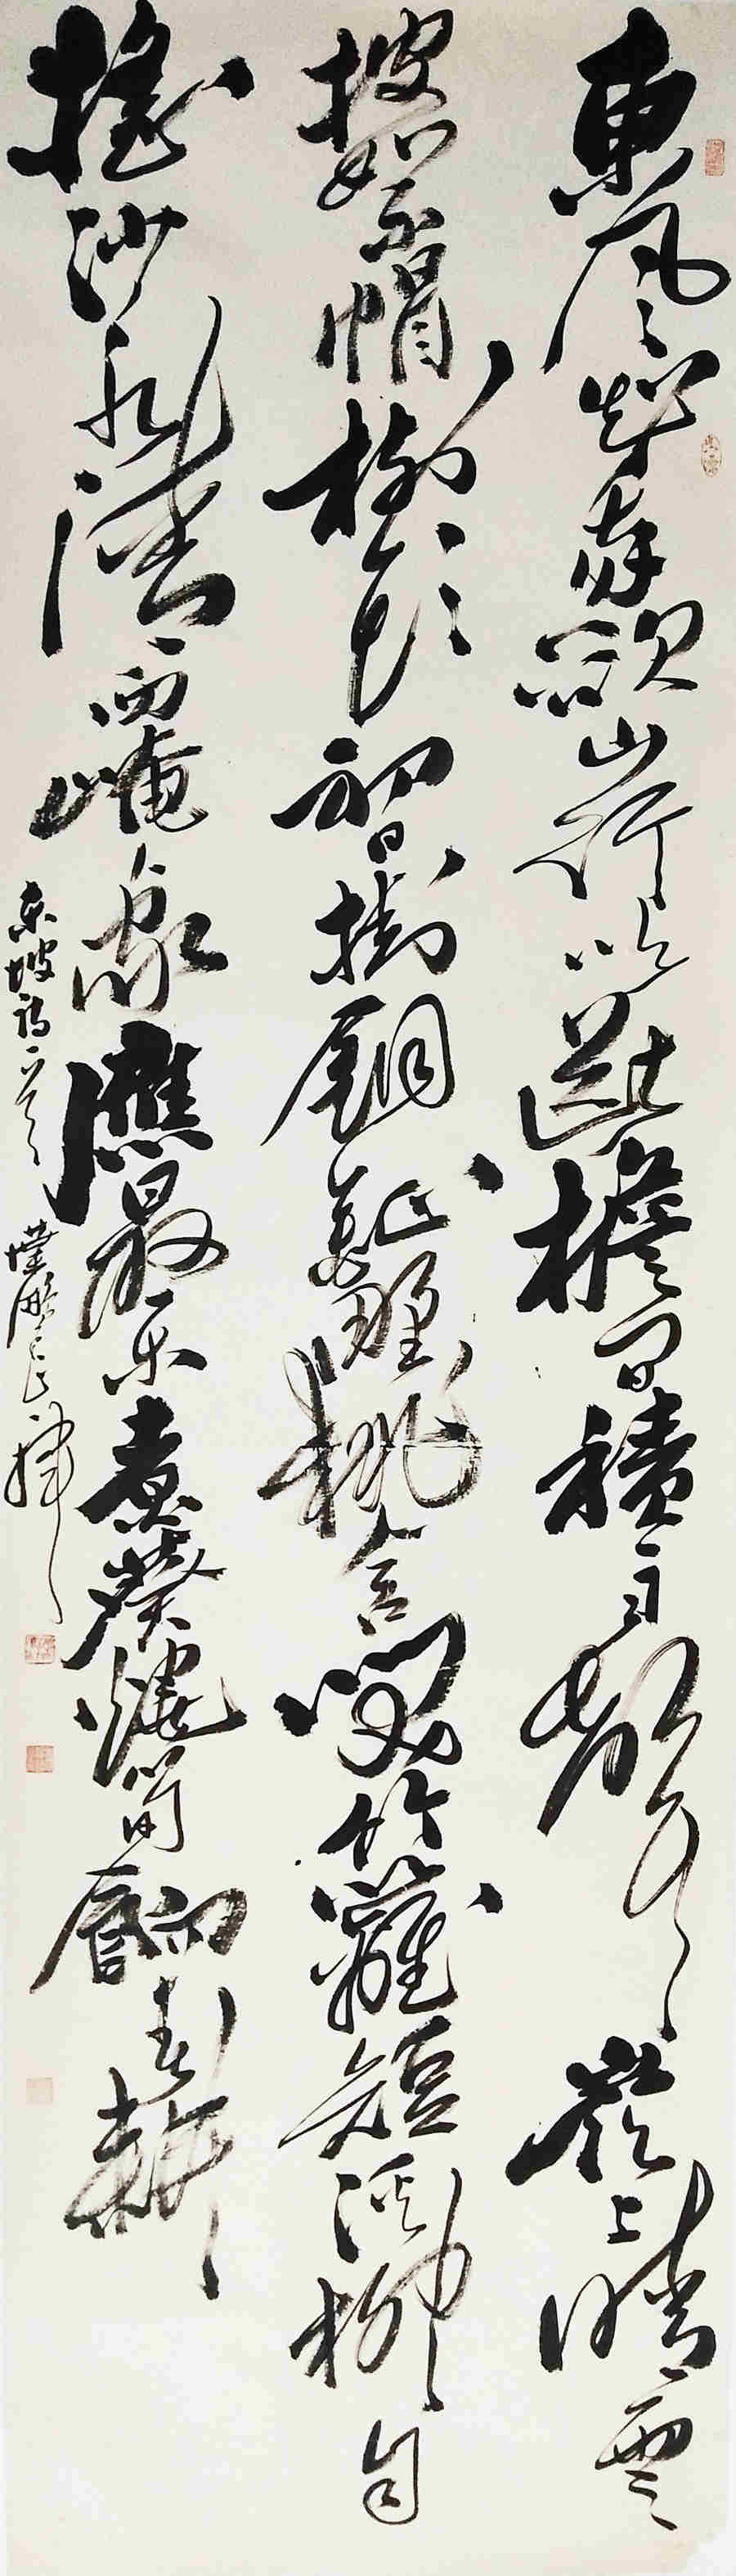 東風知我欲山行吹斷檐間積雨聲嶺上晴雲
披絮帽樹頭初日掛銅鉦野桃含笑竹籬短溪柳自
搖沙水清西崦人家應最樂煮葵燒筍餉春耕
東坡詩一首